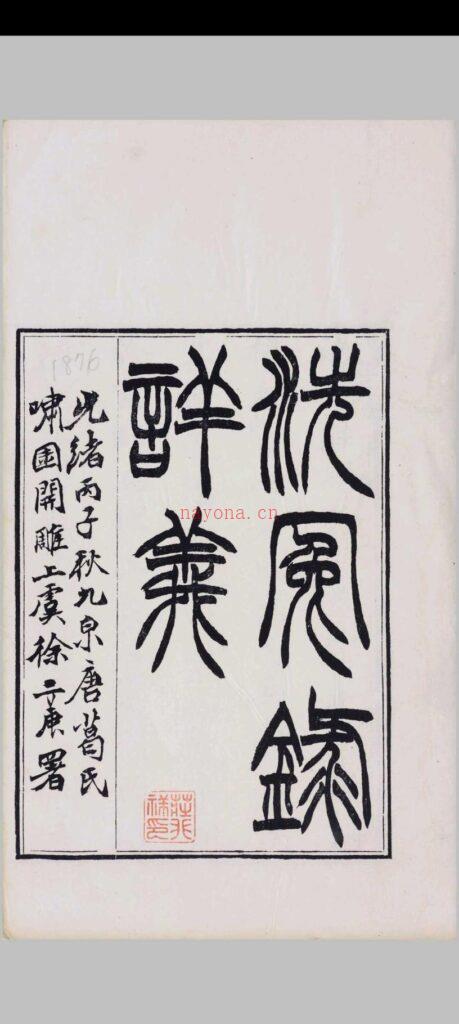 洗冤錄
詳義
光緒丙子秋九泉唐葛氏
嘯園開雕上虞徐三庚署
1876
莊兆祥印
nayona.cn